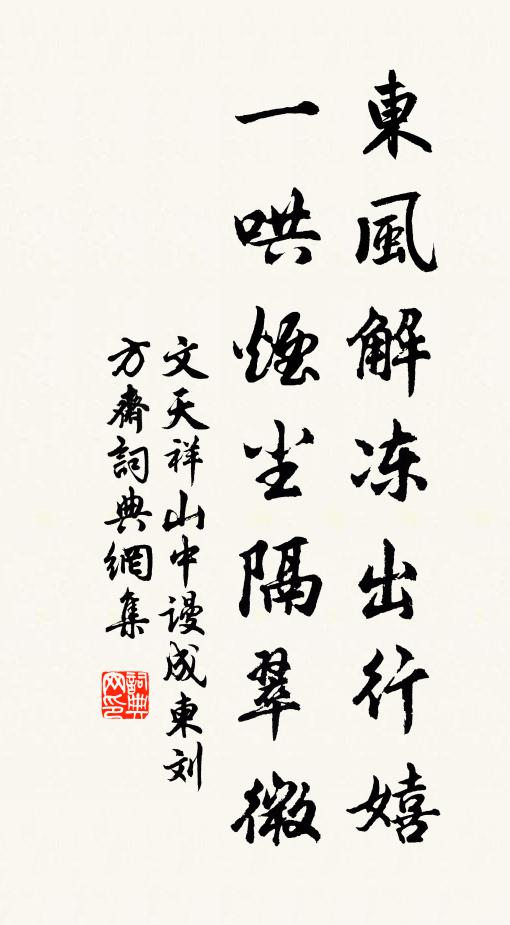 東風解冻出行嬉
一哄煙尘隔翠微
文天祥山中谩成東刘
方齋詞典網集
詞典网印